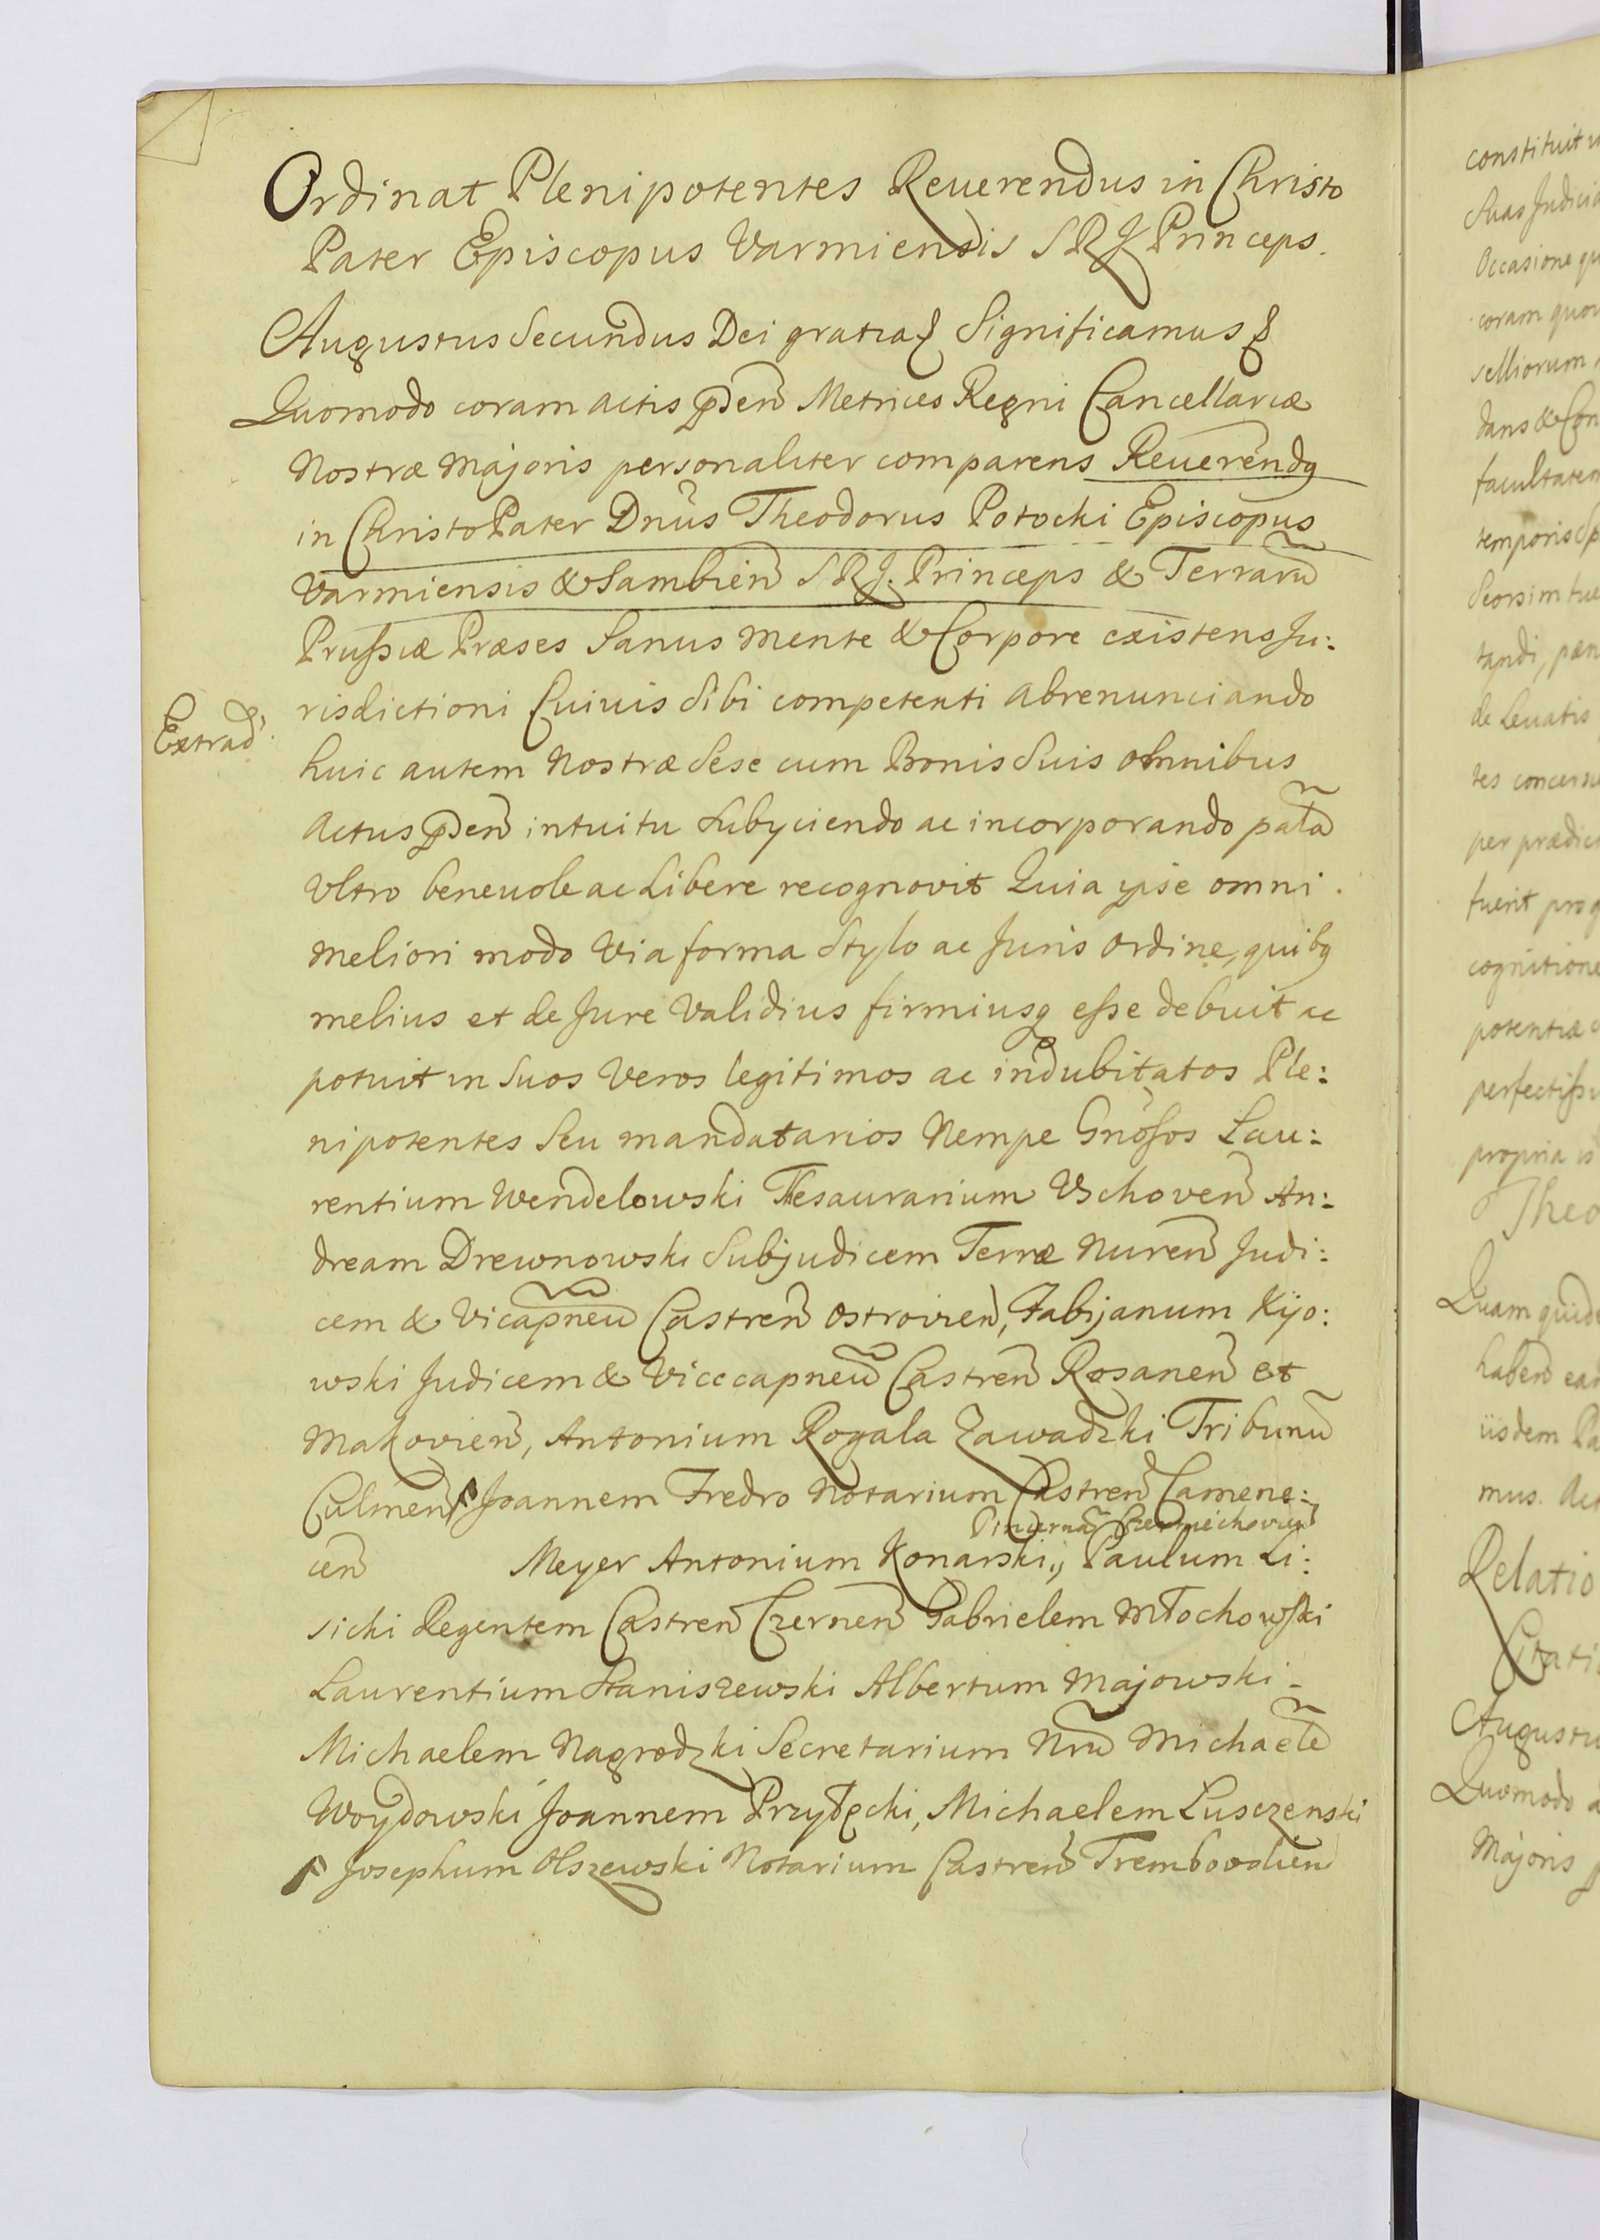 Ordinat Plenipotentes Reuerendus in Christo
Pater Episcopus Varmiensis S R J Princeps.
Augustus Secundus Dei gratia Significamus
Quomodo coram actis pñden Metrices Regni Cancellariæ
Nostræ Majoris personaliter comparens Reuerendq
in Christo Pater Dnus Theodorus Potocki Episcopus
Varmiensis & Sambien S R J. Princeps & Terraru
Prussiæ Præses Sanus mente & Corpore existens Ju:
risdictioni Cuiuis Sibi competenti abrenunciando
Extrad.
huic autem Nostræ Sese cum Bonis Suis omnibus
Actus pñden intuitu Subyciendo ac incorporando palã
Vltro beneuole ac Libere recognovit Quia ipse omni
meliori modo Via forma Stylo ac Juris Ordine, quibq
melius et de Jure Validius firmiusq esse debuit ac
potuit in Suos Veros legitimos ac indubitatos Ple:
nipotentes Seu mandatarios Nempe Gnosos Lau:
rentium Wendelowski Thesaurarium Vschoven An:
dream Drewnowski Subjudicem Terræ Nuren Judi:
cem & Vicapneu Castren Ostrovien, Fabijanum Kijo:
wski Judicem & Vicecapneu Castren Rosanen et
Makovien, Antonium Rogala Zawadzki Tribunu
Culmen Joannem Fredro Notarium Castren Camene:
Pincernã
cen Meyer Antonium Konarski, Paulum Li:
sicki Regentem Castren Czernen Gabrielem Młochowski
Laurentium Staniszewski Albertum Majowski
Michaelem Nagrodzki Secretarium Nrũ Michaelẽ
Woydowski Joannem Przyłęcki, Michaelem Lusczenski
Josephum Olszewski Notarium Castren Trembovolien
constituit
Suas Judicia
Occasione
coram
selliorum
dans &
temporis
Seorsim
tandi,
de Leuatis
tes
per
fuerit
cognitione
potentiæ
propria
Theo
Quam
haben
iisdem
mus.
Relatio
Augustu
Quomodo
Majoris